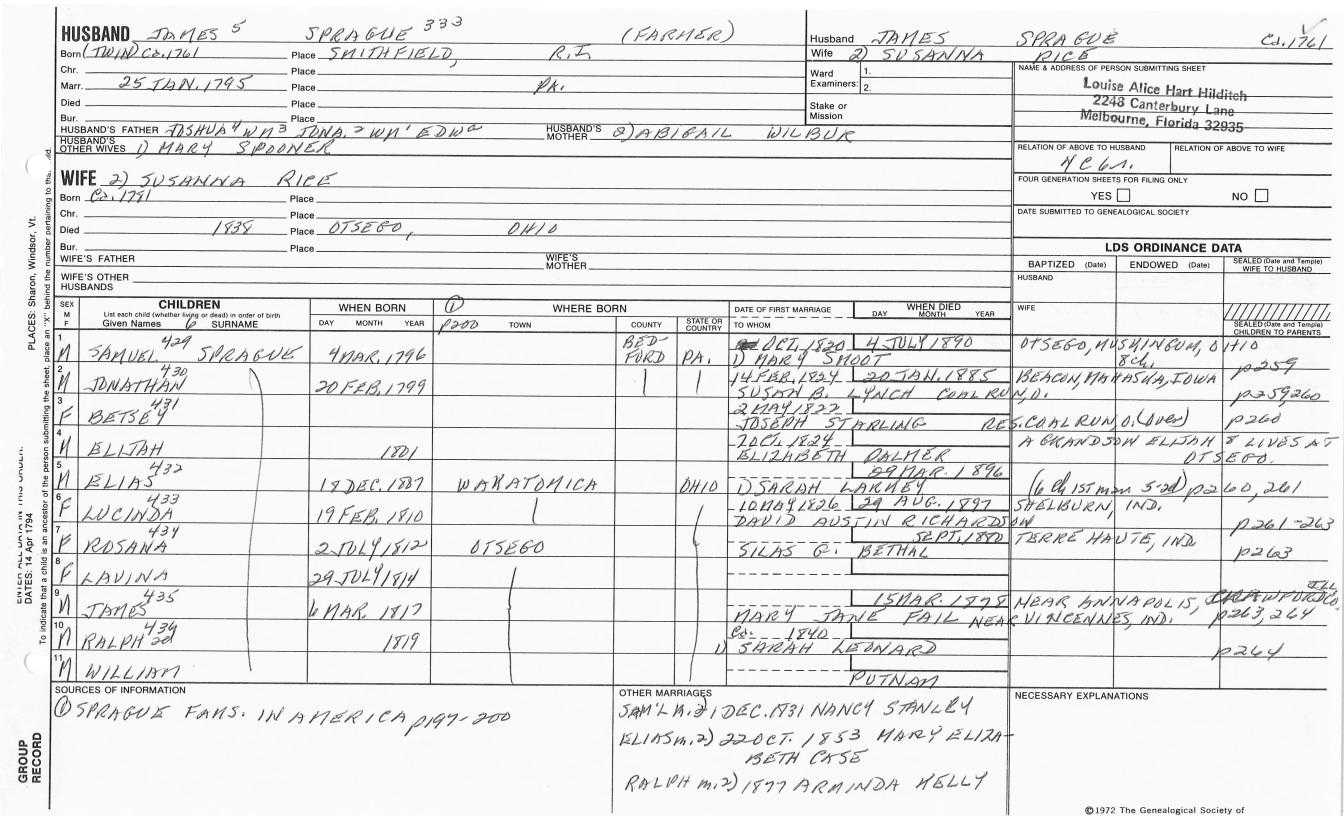 HUSBAND JAMES 5 SPRAGUE 333 (FARMER)
Born (TWIN) Ca.1761 Place SMITHFIELD, R.I.
Chr. Place
Marr. 25 JAN. 1795 Place PA.
Died Place
Bur. Place
HUSBAND'S FATHER JOSHUA 4 WM 3 JONA. 2 WM 1 EDW HUSBAND'S MOTHER 2) ABIGAIL WILBUR
HUSBAND'S OTHER WIVES 1) MARY SPOONER
Husband JAMES SPRAGUE Ca.1761
Wife 2) SUSANNA RICE
Ward Examiners: 1. 2.
Stake or Mission
NAME & ADDRESS OF PERSON SUBMITTING SHEET
Louise Alice Hart Hilditch
2248 Canterbury Lane
Melbourne, Florida 32935
RELATION OF ABOVE TO HUSBAND RELATION OF ABOVE TO WIFE
4C6r.
FOUR GENERATION SHEETS FOR FILING ONLY
YES NO
DATE SUBMITTED TO GENEALOGICAL SOCIETY
WIFE 2) SUSANNA RICE
Born Ca. 1791 Place
Chr. Place
Died 1838 Place OTSEGO, OHIO
Bur. Place
WIFE'S FATHER WIFE'S MOTHER
WIFE'S OTHER HUSBANDS
LDS ORDINANCE DATA
BAPTIZED (Date) ENDOWED (Date) SEALED (Date and Temple) WIFE TO HUSBAND
HUSBAND
WIFE
SEALED (Date and Temple) CHILDREN TO PARENTS
SEX M F CHILDREN WHEN BORN ① WHERE BORN DATE OF FIRST MARRIAGE WHEN DIED
List each child (whether living or dead) in order of birth
Given Names 6 SURNAME DAY MONTH YEAR p200 TOWN COUNTY STATE OR COUNTRY TO WHOM DAY MONTH YEAR
1 M SAMUEL 429 SPRAGUE 4 MAR. 1796 BEDFORD PA. OCT. 1820 4 JULY 1890 OTSEGO, MUSKINGUM, OHIO
1) MARY SMOOT 8ch. p259
2 M JONATHAN 430 20 FEB. 1799 14 FEB. 1824 20 JAN. 1885 BEACON, MAHASKA, IOWA
SUSAN B. LYNCH COAL RUN, O. p259,260
3 F BETSEY 431 2 MAY 1822
JOSEPH STARLING RES. COAL RUN, O. (over) p260
4 M ELIJAH 1801 7 OCT. 1824 A GRANDSON ELIJAH 8 LIVES AT
ELIZABETH PALMER OTSEGO.
5 M ELIAS 432 18 DEC. 1807 WAKATOMICA OHIO 29 MAR. 1896
1) SARAH LARNEY (6 ch 1st mar 5-2d) p260, 261
6 F LUCINDA 433 19 FEB. 1810 10 MAY 1826 29 AUG. 1897 SHELBURN, IND.
DAVID AUSTIN RICHARDSON p261-263
7 F ROSANA 434 2 JULY 1812 OTSEGO SEPT. 1880 TERRE HAUTE, IND
SILAS G. BETHAL p263
8 F LAVINA 29 JULY 1814
9 M JAMES 435 6 MAR. 1817 15 MAR. 1878 NEAR ANNAPOLIS, CRAWFORD CO. ILL
MARY JANE FAIL NEAR VINCENNES, IND. p263, 264
10 M RALPH 436 1819 Ca. 1840
1) SARAH LEONARD p264
11 M WILLIAM
PUTNAM
SOURCES OF INFORMATION
① SPRAGUE FAMS. IN AMERICA p197-200
OTHER MARRIAGES
SAM'L M. 2) 1 DEC. 1831 NANCY STANLEY
ELIAS m. 2) 22 OCT. 1853 MARY ELIZA-
BETH CASE
RALPH m. 2) 1877 ARMINDA KELLY
NECESSARY EXPLANATIONS
©1972 The Genealogical Society of
GROUP RECORD
DATES: 14 Apr 1794
PLACES: Sharon, Windsor, Vt.
To indicate that a child is an ancestor of the person submitting the sheet, place an "X" behind the number pertaining to